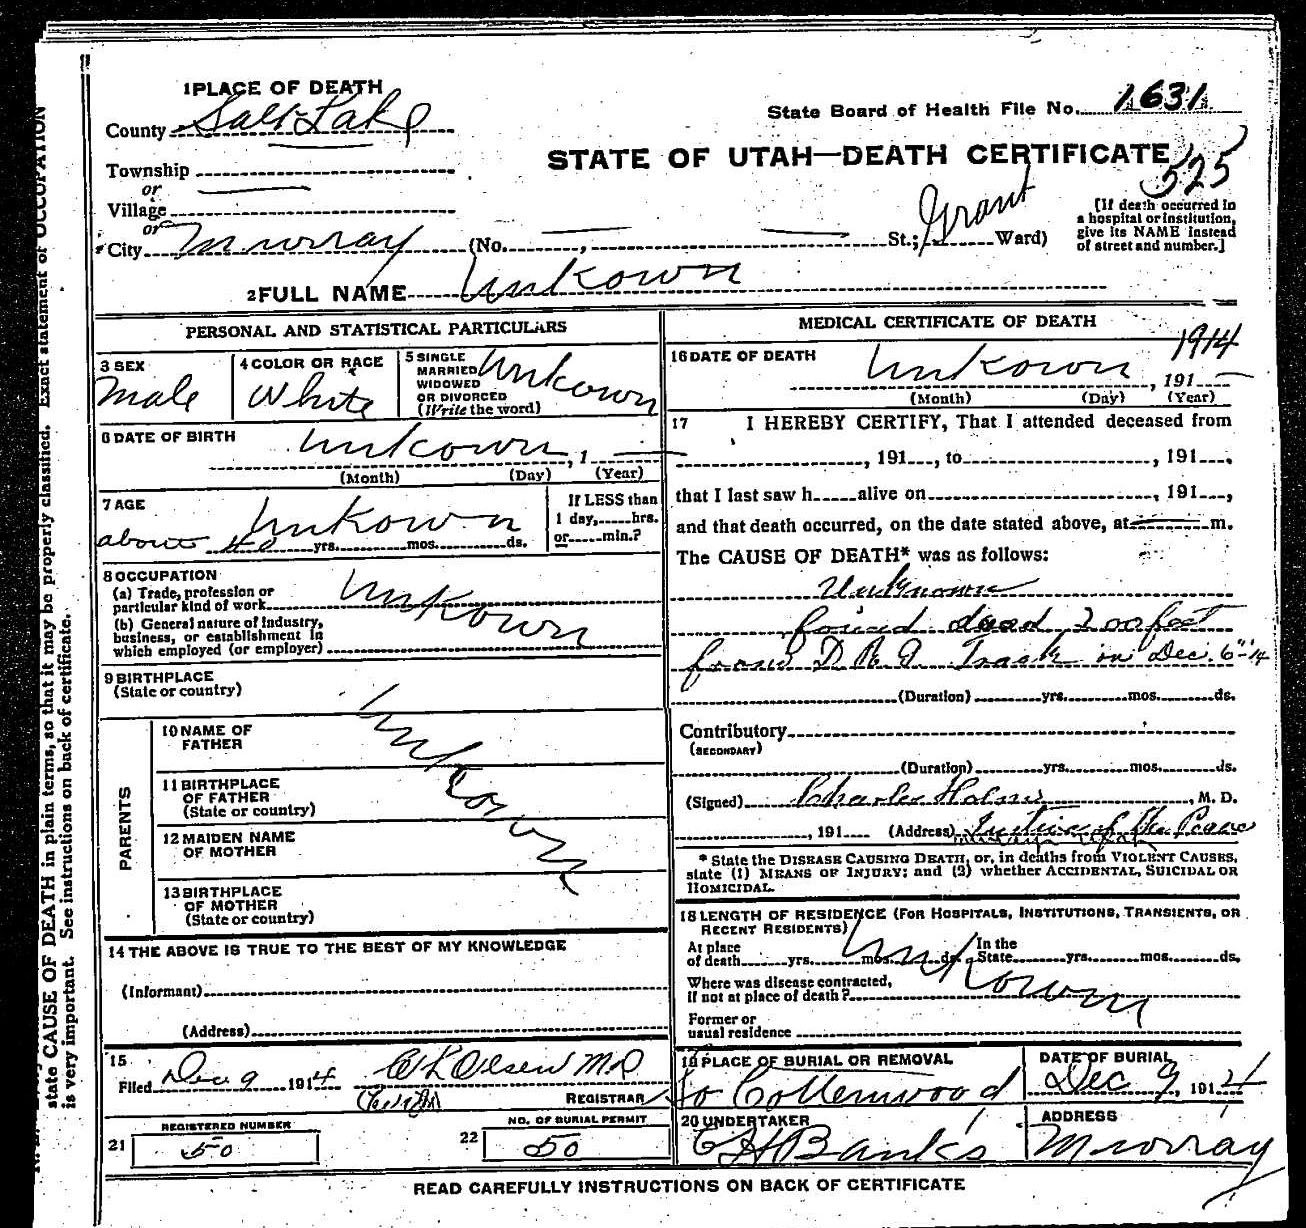 1 PLACE OF DEATH
County Salt Lake
State Board of Health File No. 1631
STATE OF UTAH—DEATH CERTIFICATE
525
Township
or
Village
or
City Murray (No. , St.; Grant Ward)
[If death occurred in
a hospital or institution,
give its NAME instead
of street and number.]
2 FULL NAME Unkown
PERSONAL AND STATISTICAL PARTICULARS
3 SEX
Male
4 COLOR OR RACE
White
5 SINGLE
MARRIED
WIDOWED
OR DIVORCED
(Write the word)
Unkown
6 DATE OF BIRTH
Unkown , 1
(Month) (Day) (Year)
7 AGE
Unkown
about 40 yrs. mos. ds.
If LESS than
1 day, hrs.
or min.?
8 OCCUPATION
(a) Trade, profession or
particular kind of work
(b) General nature of industry,
business, or establishment in
which employed (or employer)
Unkown
9 BIRTHPLACE
(State or country)
PARENTS
10 NAME OF
FATHER
11 BIRTHPLACE
OF FATHER
(State or country)
12 MAIDEN NAME
OF MOTHER
13 BIRTHPLACE
OF MOTHER
(State or country)
Unkown
14 THE ABOVE IS TRUE TO THE BEST OF MY KNOWLEDGE
(Informant)
(Address)
15
Filed Dec 9 1914 Olsen M.D
REGISTRAR
21 REGISTERED NUMBER
50
22 NO. OF BURIAL PERMIT
50
MEDICAL CERTIFICATE OF DEATH
16 DATE OF DEATH
Unkown 1914
, 191
(Month) (Day) (Year)
17 I HEREBY CERTIFY, That I attended deceased from
, 191 , to , 191 ,
that I last saw h alive on , 191 ,
and that death occurred, on the date stated above, at m.
The CAUSE OF DEATH* was as follows:
Unknown
found dead 200 feet
from D.R.G. Track on Dec. 6"-14
(Duration) yrs. mos. ds.
Contributory
(SECONDARY)
(Duration) yrs. mos. ds.
(Signed) Charles Holms , M. D.
, 191 (Address) Justice of the Peace
Murray Utah
* State the DISEASE CAUSING DEATH, or, in deaths from VIOLENT CAUSES,
state (1) MEANS OF INJURY; and (2) whether ACCIDENTAL, SUICIDAL OR
HOMICIDAL.
18 LENGTH OF RESIDENCE (FOR HOSPITALS, INSTITUTIONS, TRANSIENTS, OR
RECENT RESIDENTS)
At place
of death yrs. mos. ds.
In the
State yrs. mos. ds.
Where was disease contracted,
if not at place of death?
Unkown
Former or
usual residence
19 PLACE OF BURIAL OR REMOVAL
So Cottenwood
DATE OF BURIAL
Dec 9, 1914
20 UNDERTAKER
Banks
ADDRESS
Murray
READ CAREFULLY INSTRUCTIONS ON BACK OF CERTIFICATE
state CAUSE OF DEATH in plain terms, so that it may be properly classified. Exact statement of OCCUPATION
is very important. See instructions on back of certificate.